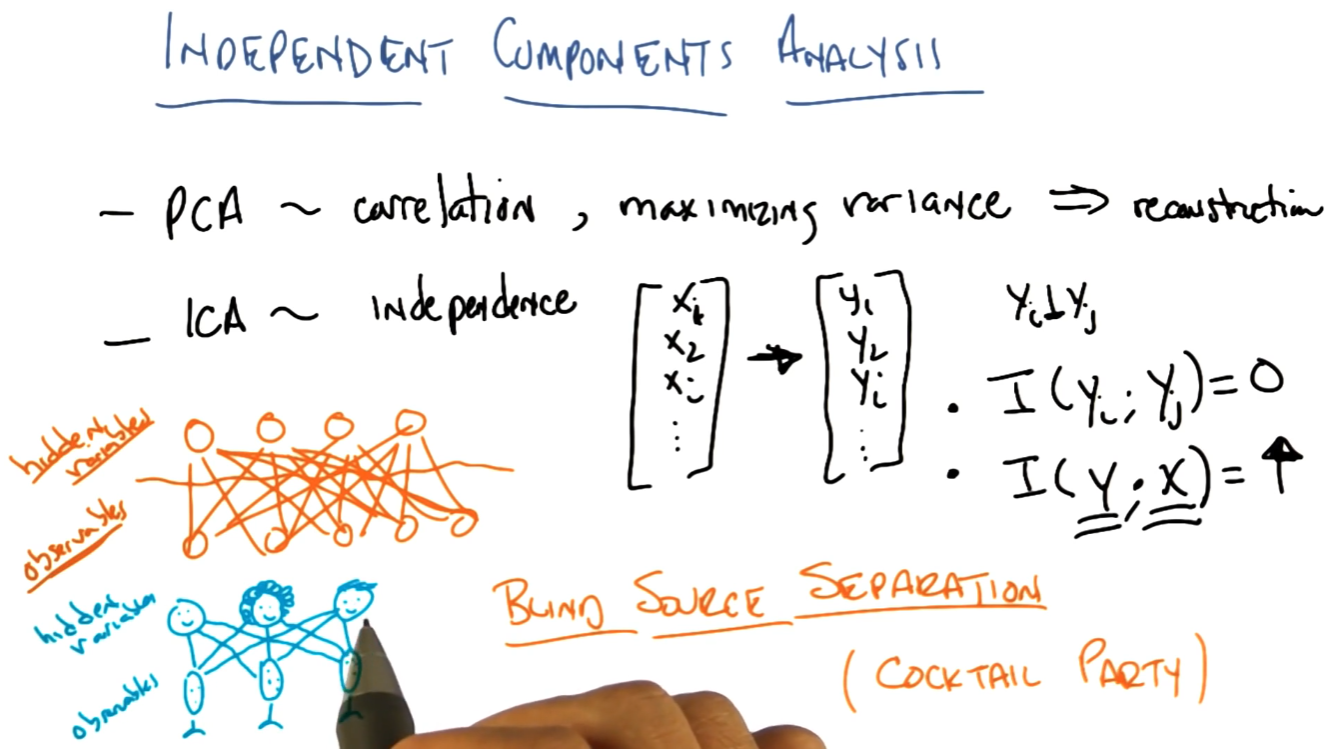 INDEPENDENT COMPONENTS ANALYSIS
– PCA ~ correlation, maximizing variance ⇒ reconstruction
– ICA ~ independence
[x₁ x₂ xᵢ ⋮] → [y₁ y₂ yᵢ ⋮]
yᵢ⊥yⱼ
• I(yᵢ; yⱼ)=0
• I(Y; X)=↑
hidden variables
observables
hidden variables
observables
BLIND SOURCE SEPARATION
(COCKTAIL PARTY)